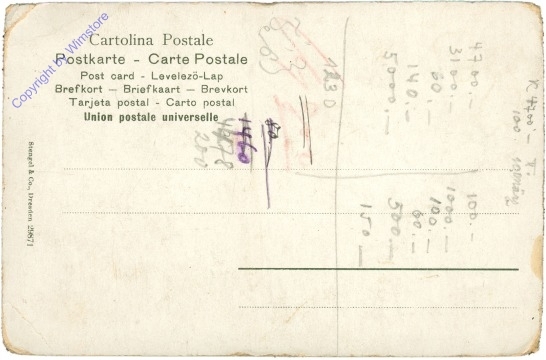 Cartolina Postale
Postkarte - Carte Postale
Post card - Levelező-Lap
Brefkort — Briefkaart — Brevkort
Tarjeta postal - Carto postal
Union postale universelle
Copyright by Wimstore
Stengel & Co., Dresden 29871
1230
4700.-
31000.-
60.-
140.-
5000.-
100.-
1000.-
100.-
60.-
500.-
150.-
1460
200